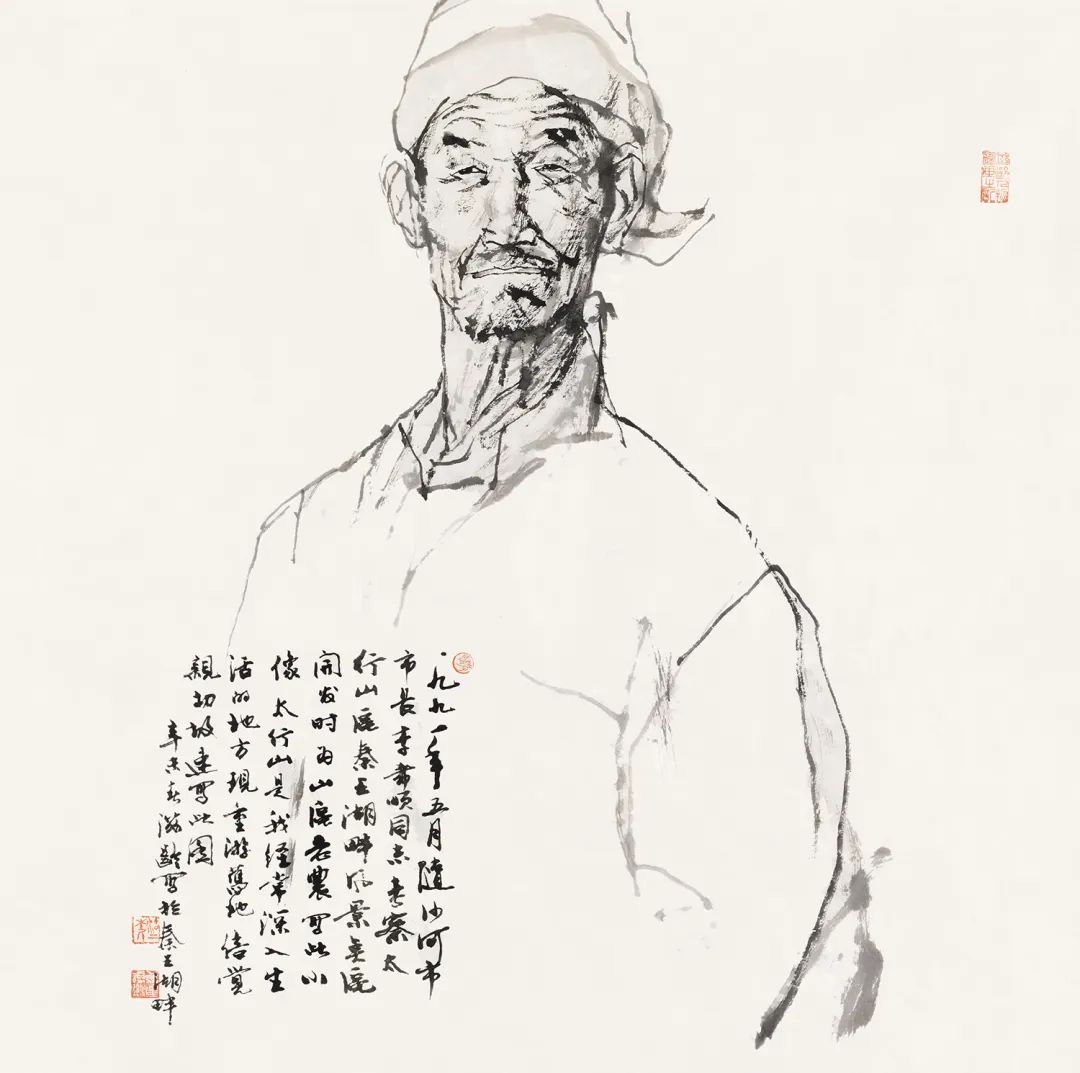 一九九一年五月隨沙河市
市长李書顺同志考察太
行山區秦王湖畔风景奌區
開发时为山區老農写此小
像太行山是我经常深入生
活的地方現重游舊地倍觉
親切故速写此图
辛未春滋齡写於秦王湖畔